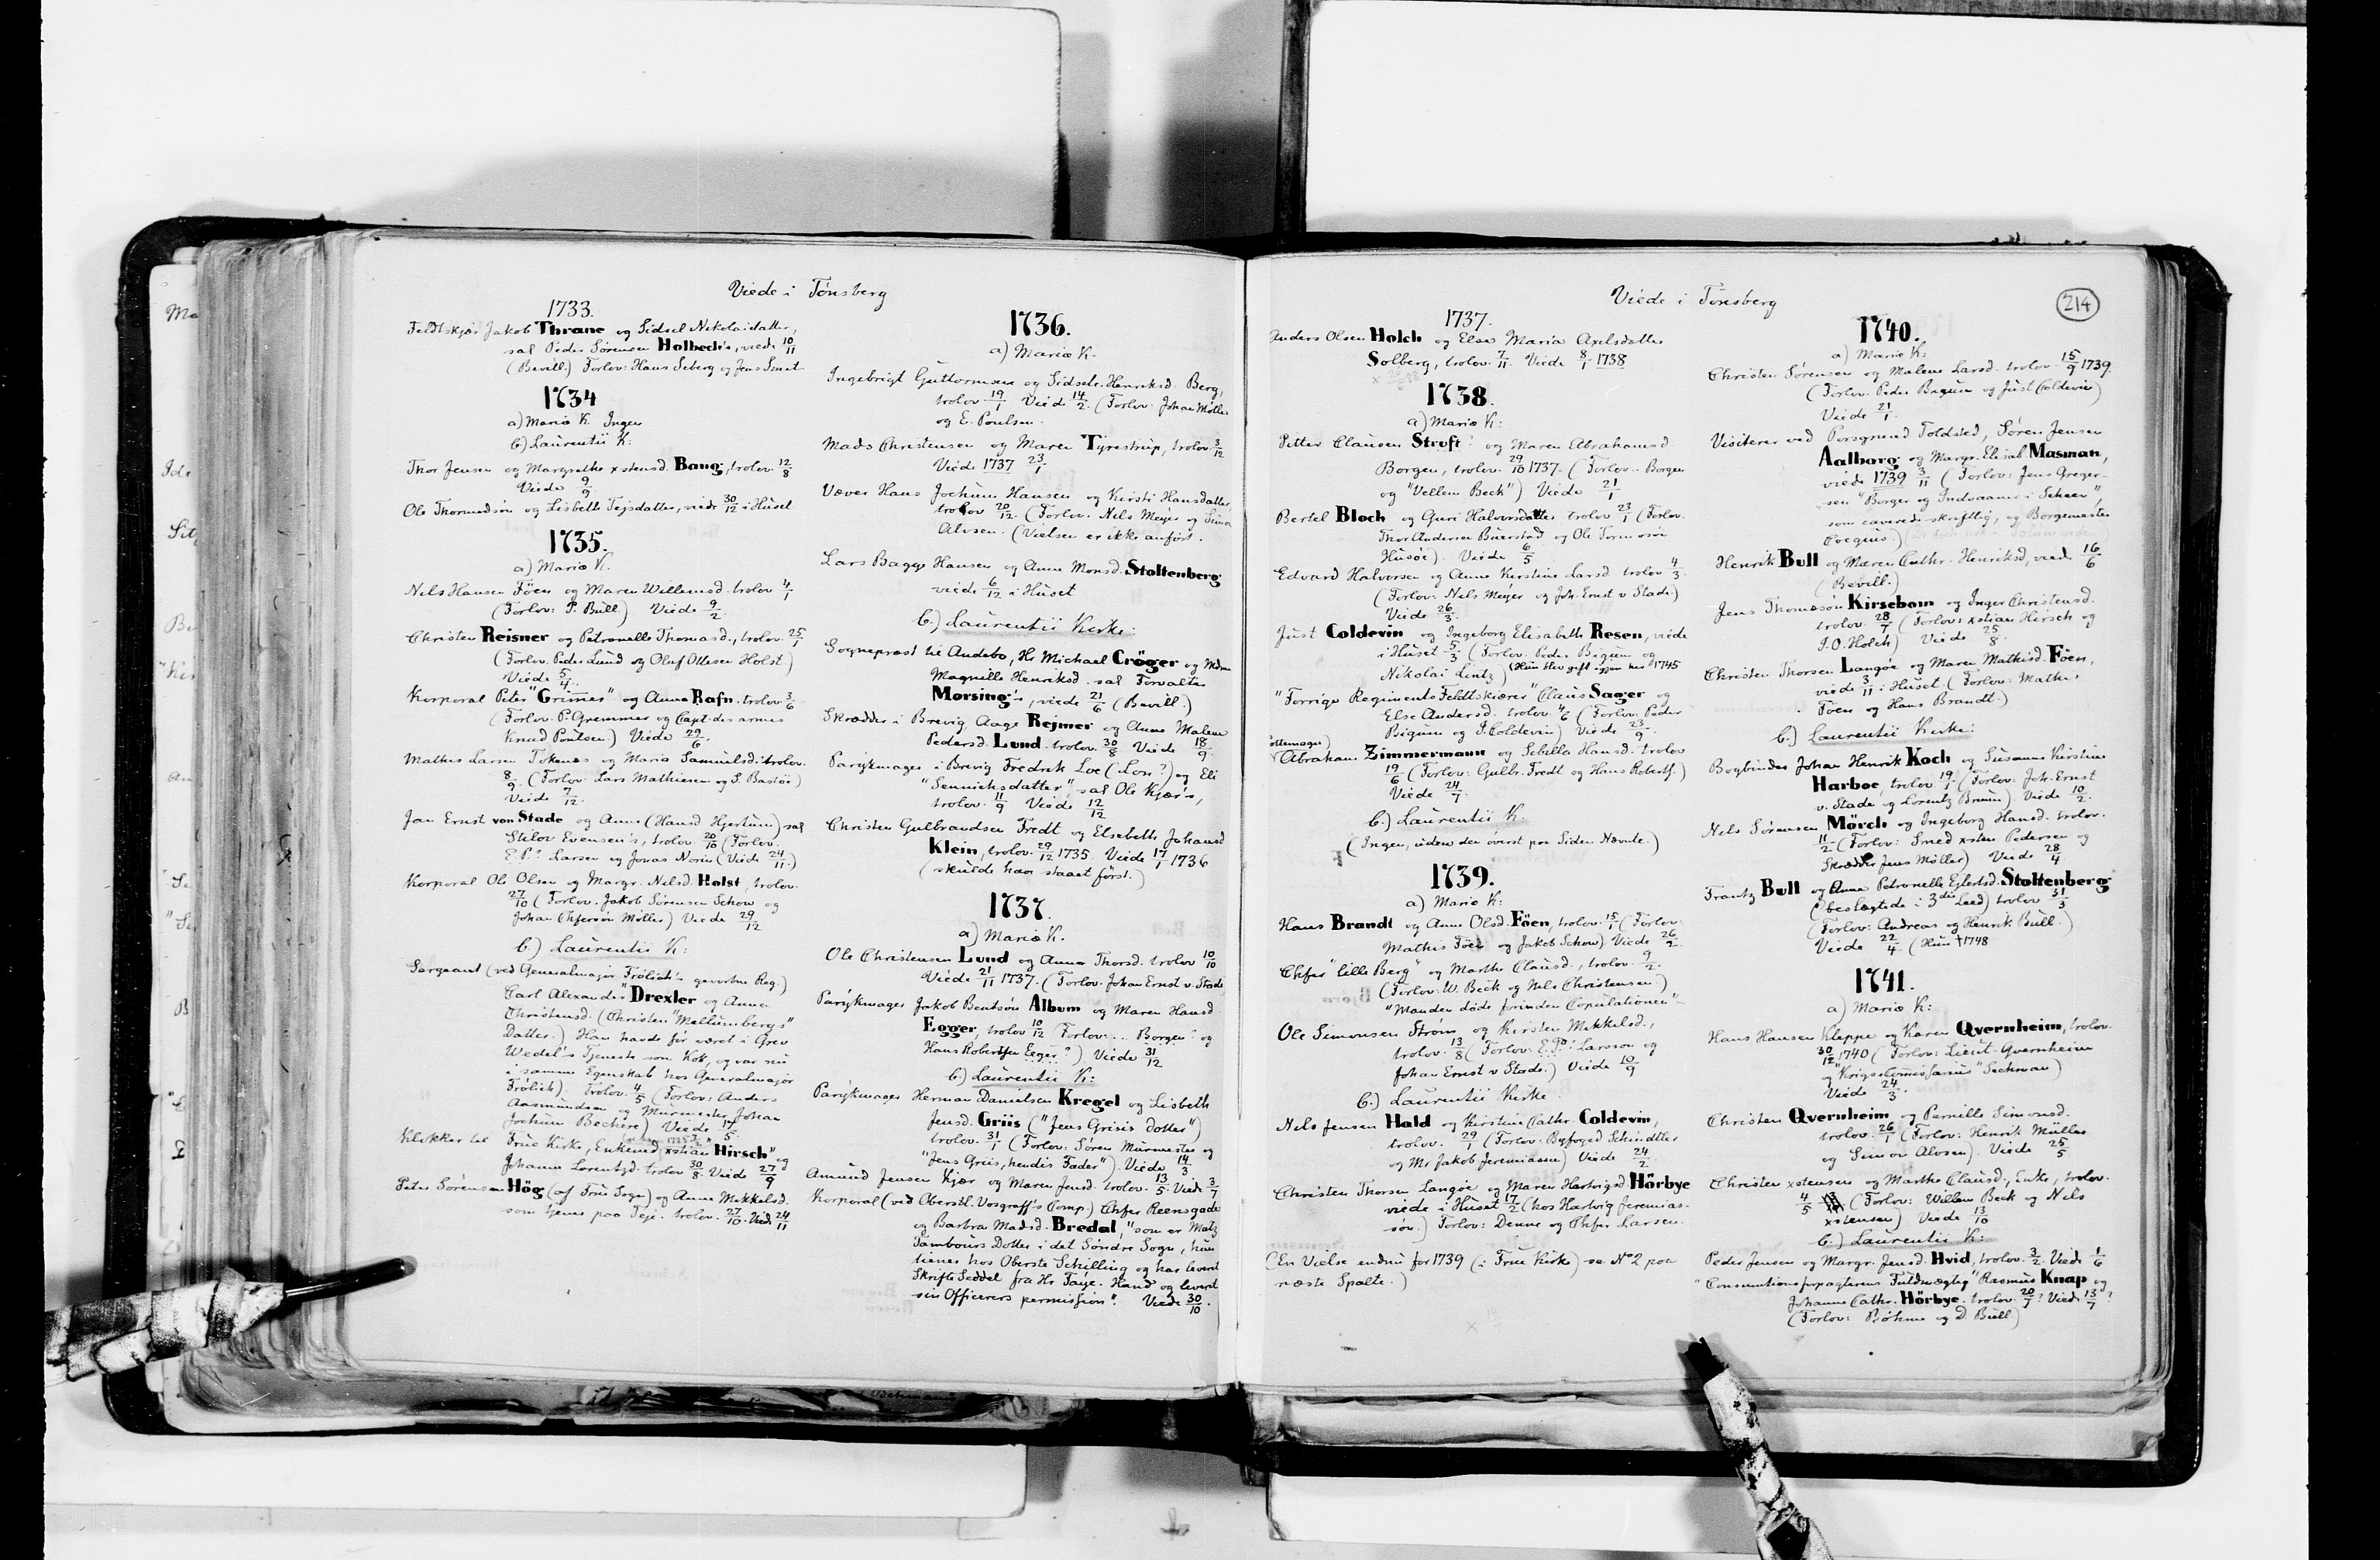 Viede i Tönsberg
1733.
Feldtskjær Jakob Thrane og Sidsel Nikolaidatter,
sal Peder Sörensen Holbech's, viede 10/11
(Bevill.) Forlov: Hans Seberg og Jens Smet
1734
a) Mariæ K. Ingen
b) Laurentii K:
Thor Jensen og Margrethe xstensd. Bang, trolov. 12/8
Viede 9/9.
Ole Thormodsön og Lisbeth Tejsdatter, viede 30/12 i Huset
1735.
a) Mariæ K.
Nils Hansen Föen og Maren Willumsd. trolov 4/1
(Forlov: P. Bull) Viede 9/2.
Christen Reisner og Petronelle Thomasd., trolov. 25/1
(Forlov. Peder Lund og Oluf Ottesen Holst)
Viede 5/4.
Korporal Peter "Grimes" og Anna Rafn. trolov. 3/6
(Forlov. P. Gremmer og Capt. des armes
Knud Poulsen.) Viede 29/6.
Mathis Larsen Tokenæs og Maria Samuelsd: trolov.
8/9. (Forlov: Lars Mathisen og S. Bastöe)
Viede 7/12.
Jan Ernst von Stade og Anne (Hansd Hjertum) sal
Stilov Evensen's, trolov. 20/10 (Forlov.
E. P. Larsen og Jonas Norin (Viede 24/11.)
Korporal Ole Olsen og Margr. Nilsd. Holst, trolov.
27/10 (Forlov. Jakob Sörensen Schow og
Johan Chfersön Möller) Viede 29/12
b) Laurentii K:
Sargeant (ved Generalmajor Frölich's gevorbne Reg.)
Carl Alexander Drexler og Anna
Christensd. (Christen "Mellumbergs"
Datter.) Han havde för været i Grev
Wedel's Tjeneste som Kok, og var nu
i samme Egenskab hos Generalmajor
Frölich). Trolov. 4/5 (Forlov: Anders
Aasmundsen og Murmester Johan
Jochum Bechere) Viede 17/5.
Klokker til Frue Kirke, Enkemd. xstian Hirsch" og
Johanne Lorentzd. trolov 30/8. Viede 27/9
Peter Sörensen Hög (af Frue Sogn) og Anne Mekkelsd.
som tjener paa Teje. trolov. 27/10. Viede 24/11
1736.
a) Mariæ K.
Ingebrigt Guttormsen og Sidsele Henriksd. Berg,
trolov 19/1 Viede 14/2. (Forlov: Johan Möller
og E. Poulsen.
Mads Christensen og Maren Tyrestrup, trolov. 3/12
Viede 1737 23/1
Væver Hans Jochum Hansen og Kirsti Hansdatter
trolov 20/12. (Forlov. Nils Meyer og Simon
Alvsen. (Vielsen er ikke anfört.
Lars Bagge Hansen og Anne Monsd. Stoltenberg
viede 6/12 i Huset
b.) Laurentii Kirke:
Sogneprest til Andebo, Hr Michael Cröger og Mdm
Magnille Henriksd. sal Forvalter
Morsing's, viede 21/6 (Bevill.)
Skrædder i Brevig Aage Rejmer og Anne Malene
Pedersd. Lund. trolov. 30/8 Viede 18/9.
Parÿkmager i Brevig Fredrik Loe (Lon?) og Eli
"Sennichsdatter", sal Ole Kjær's,
trolov. 11/9 Viede 12/12
Christen Gulbrandsen Fredt og Elsebeth Johansd
Klein, trolov. 29/12 1735. Viede 17/1 1736
(skulde have staaet först.)
1737.
a) Mariæ K.
Ole Christensen Lund og Anna Thorsd. trolov 10/10
Viede 21/11 1737. (Forlov. Johan Ernst v. Stade
Parÿkmager Jakob Bentsön Album og Maren Hansd.
Egger, trolov 10/12 (Forlov: .. Borgen" og
Hans Robertsen Egger") Viede 31/12
b.) Laurentii K:
Parÿkmager Herman Danielsen Kregel og Lisbeth
Jensd. Griis ("Jens Grises Dotter")
trolov. 31/1 (Forlov: Sören Murmester og
"Jens Griis, hendis Fader") Viede 14/3
Amund Jensen Kjær og Maren Jensd. trolov. 13/5. Viede 3/7
Korporal (ved Oberstl. Vosgraff's Comp.) Chfer Reensgade
og Barbra Madsd. Bredal, "som er Matz
Tambours Dotter i det Söndre Sogn, hun
tienes hos Oberste Schilling og har levert
Skrifte Seddel fra Hr Faÿe. Hand og levert
sin Officerers permission". Viede 30/10.
Viede i Tönsberg
214
1737.
Anders Olsen Holch og Else Maria Axelsdatter
Solberg, trolov. 7/11. Viede 8/1 1738
1738.
a) Mariæ K:
Petter Clausen Stroft? og Maren Abrahamsd
Borgen, trolov. 29/10 1737. (Forlov.. Borgen
og "Vellem Beck") Viede 21/1
Bertel Bloch og Guri Halvorsdatter trolov 23/1 (Forlov.
Thor Andersen Buerstad og Ole Tormosön
Husöe). Viede 6/5
Edvard Halvorsen og Anne Kirstine Larsd trolov 4/3.
(Forlov: Nils Meyer og Joh. Ernst v Stade)
Viede 26/3.
Just Coldevin og Ingeborg Elisabeth Resen, viede
i Huset 5/3 (Forlov. Peder Bigum og
Nikolai Lintz) (Hun blev gift igjen mai 1745
"Forrige Regiments Feldtskiærer" Claus Sager og
Else Andersd. trolov. 4/6 (Forlov. Peder
Bigum og J. Coldevin) Viede 23/9.
Abraham Zimmermann og Sebella Hansd. trolov
19/6 (Forlov: Gulbr. Fredt og Hans Robertsf.)
Viede 24/7.
b.) Laurentii K.
(Ingen, uden den överst paa Siden Nævnte.)
1739.
a) Mariæ K:
Hans Brandt og Anne Olsd. Föen, trolov. 15/1 (Forlov:
Mathis Föen og Jakob Schow) Viede 26/2.
Chfer "Lille Berg" og Marthe Clausd., trolov. 9/2.
(Forlov: W. Beck og Nils Christensen.)
"Manden döde forinden Copulationen"
Ole Simonsen Ström og Kirsten Mekkelsd.,
trolov. 13/8 (Forlov: E. Larsson og
Johan Ernst v Stade.) Viede 10/9
b.) Laurentii Kirke
Nils Jensen Hald og Kirstine Cathr. Coldevin,
trolov. 29/1 (Forlov: Byfoged Schindtler
og Mr Jakob Jeremiasen) Viede 24/2.
Christen Thorsen Langöe og Maren Hartvigsd Hörbye
viede i Huset 17/2 (hos Hartvig Jeremias-
sön.) Forlov: Denne og Chfer Larsen.
(En Vielse endnu for 1739 (i Frue Kirke) se No 2 paa
næste Spalte.)
1740.
a) Mariæ K:
Christen Sörensen og Malene Larsd. trolov. 15/9 1739.
(Forlov. Peder Bigum og Just Coldevin)
Viede 21/1.
Visiterer ved Porsgrund Toldsted, Sören Jensen
Aalborg og Margr. Elisab Masman,
viede 1739 3/11 (Forlov: Jens Greger-
sen "Borger og Indvaaner i Scheen",
som caverede skriftlig, og Borgemester
Coegius.)
Henrik Bull og Maren Cathr. Henriksd, viede 16/6
(Bevill.)
Jens Thomæsön Kirsebom og Inger Christensd.
trolov. 28/7 (Forlov: xstian Hirsch og
J. O. Holch) Viede 25/8.
Christen Thorsen Langöe og Maren Mathisd. Föen,
viede 3/11 i Huset. (Forlov: Mathis
Föen og Hans Brandt.)
b.) Laurentii Kirke:
Bogbinder Johan Henrik Koch og Susanne Kirstine
Harboe, trolov. 19/1 (Forlov: Joh. Ernst
v. Stade og Lorentz Bruun). Viede 10/2.
Nils Sörensen Mörch og Ingeborg Hansd. trolov.
11/2 (Forlov: Smed xsten Pedersen og
Skrædder Jens Möller) Viede 28/4
Frantz Bull og Anna Petronelle Eylertsd. Stoltenberg
(beslægtede i 3die Leed) trolov 31/3
(Forlov: Andreas og Henrik Bull.)
Viede 22/4. (Hun †1748
1741.
a) Mariæ K:
Hans Hansen Kleppe og Karen Qvernheim, trolov.
30/12 1740 (Forlov: Lieut. Qvernheim
og Krigs-Comissarius "Seckman)
Viede 24/3.
Christen Qvernheim og Pernille Simonsd.
trolov. 26/1 (Forlov: Henrik Müller
og Simon Alvsen). Viede 25/5
Christen xstensen og Marthe Clausd., Enke, trolov.
4/5 (Forlov: Willum Beck og Nils
xstensen) Viede 13/10
b.) Laurentii K:
Peder Jensen og Margr. Jensd. Hvid, trolov. 3/2. Viede 1/6
"Consumtionsforpagterens Fuldmægtig" Rasmus Knap og
Johanne Cathr. Hörbye. trolov. 20/7? Viede 13/7?
(Forlov: Böhme og D. Bull)